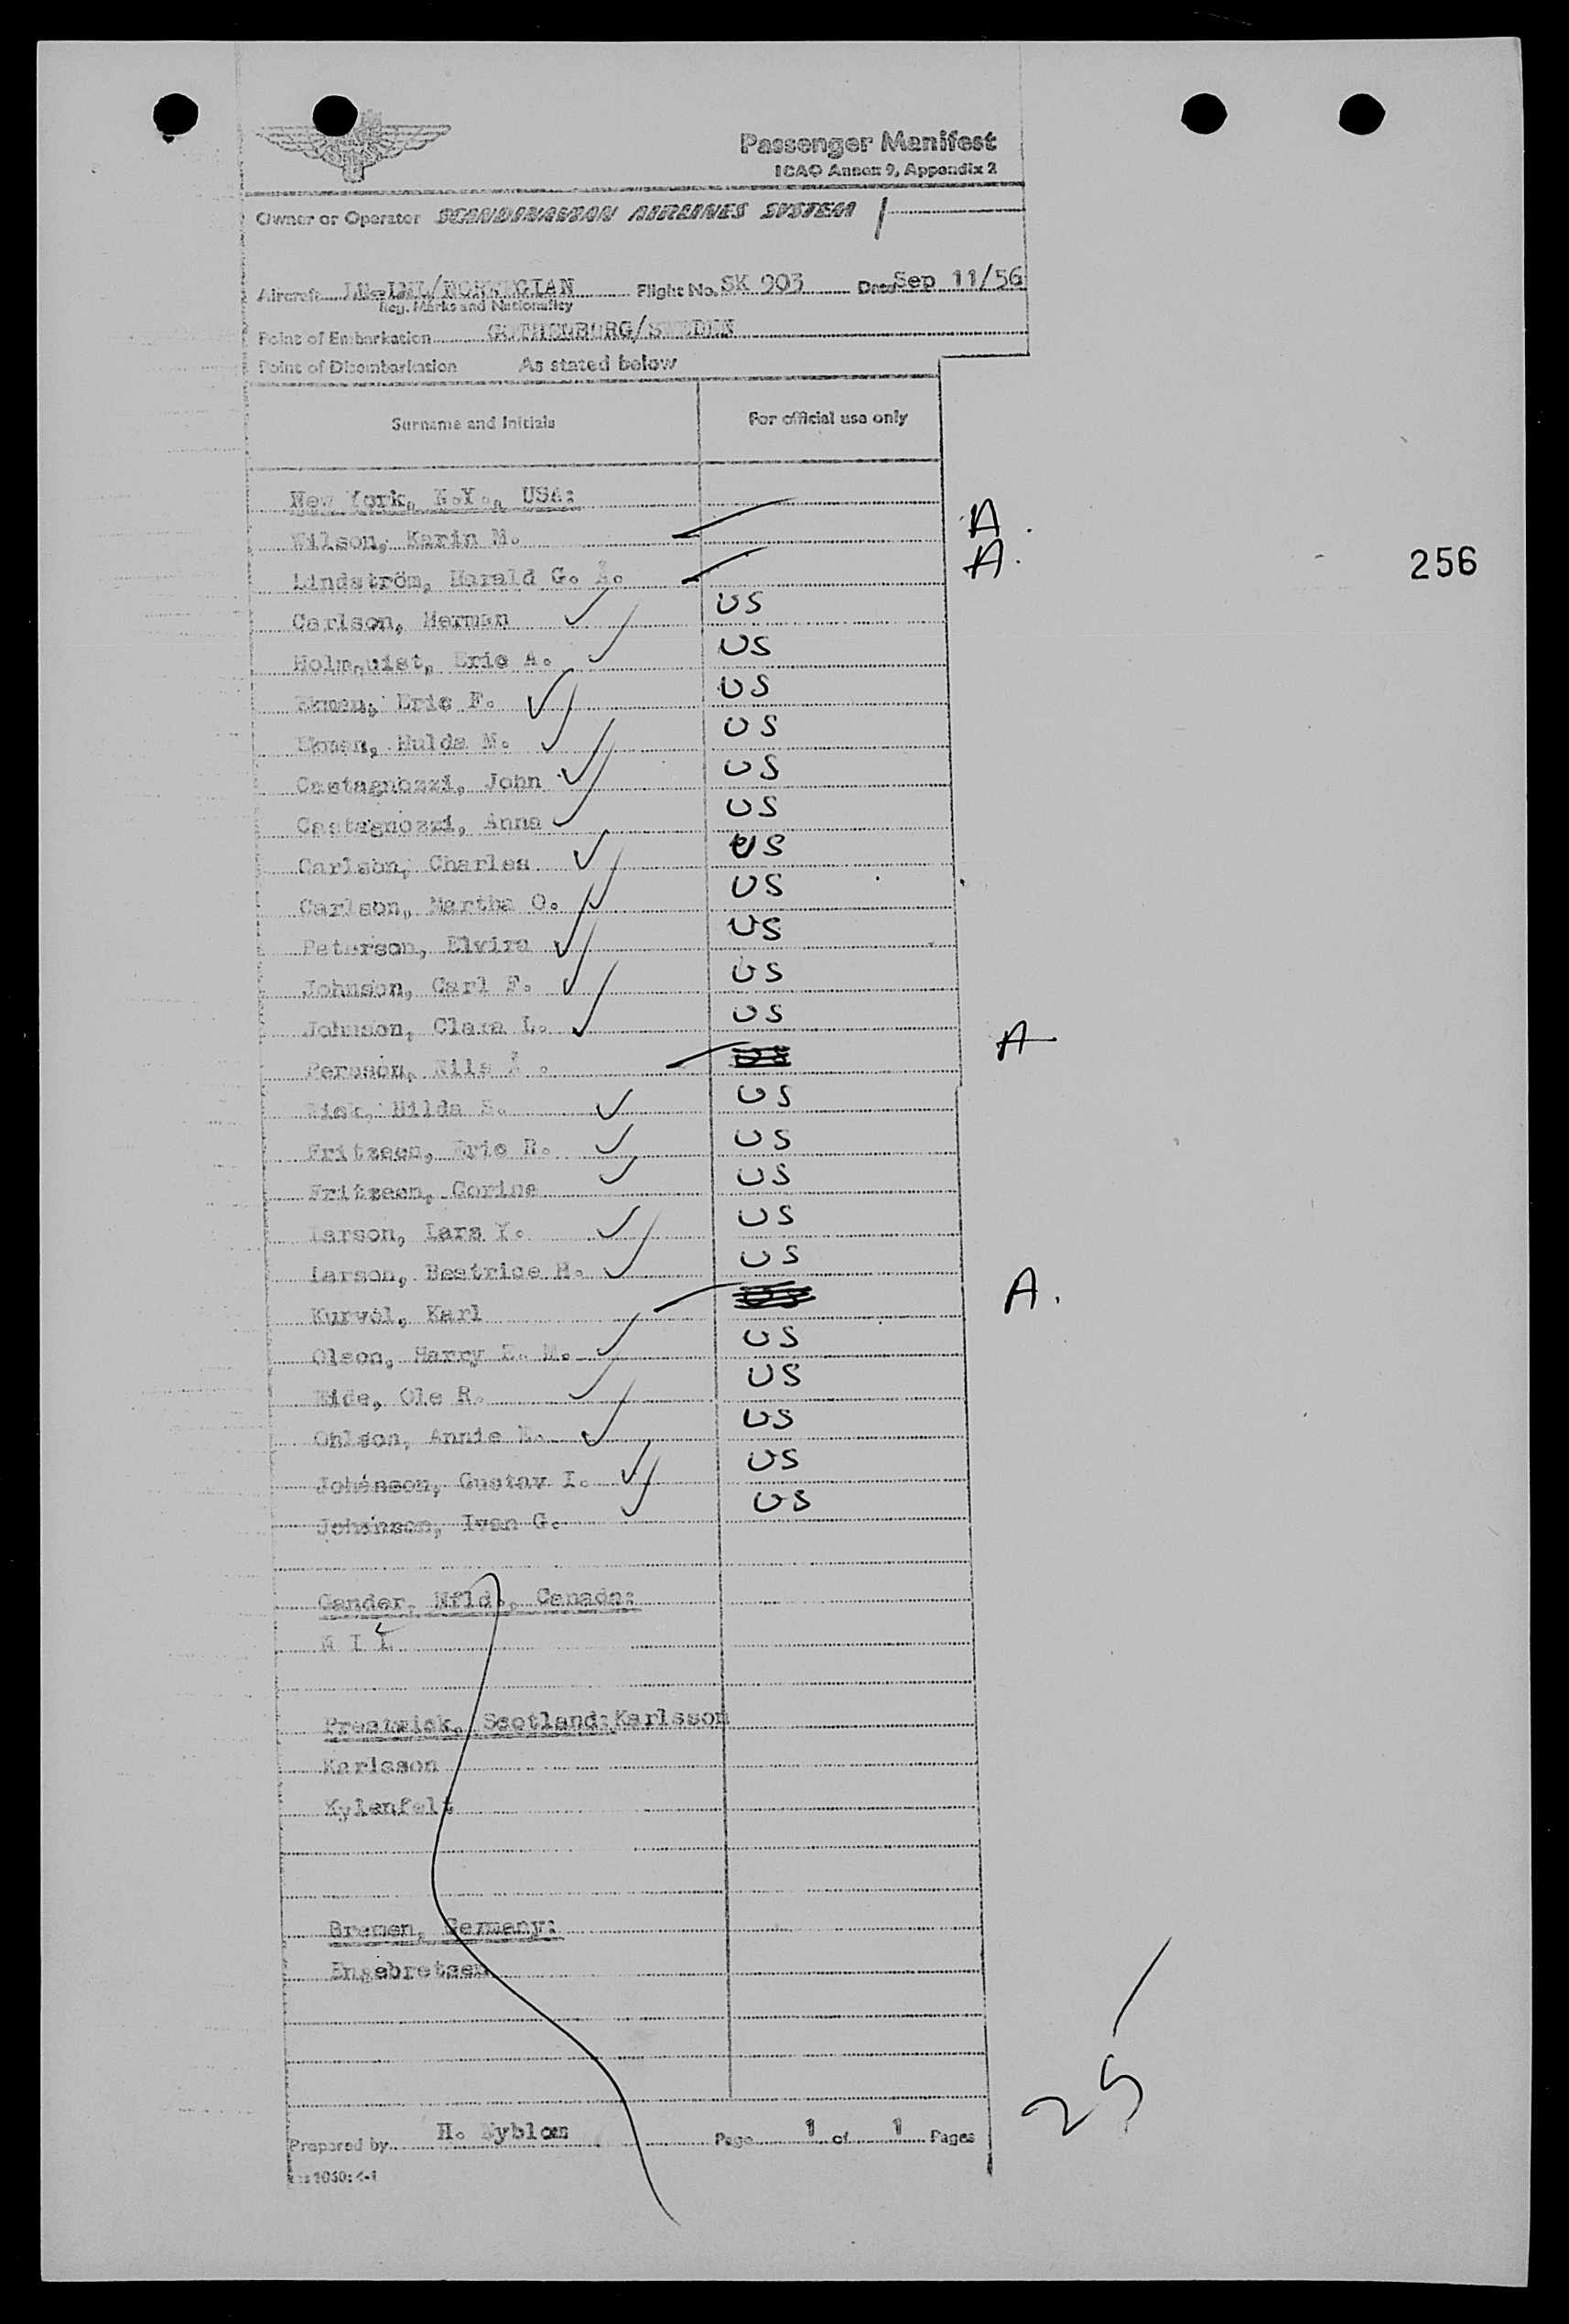 Passenger Manifest
ICAO Annex 9, Appendix 2
Owner or Operator SCANDINAVIAN AIRLINES SYSTEM
Aircraft /NORWEGIAN Flight No. SK 903 Date Sep 11/56
Reg. Marks and Nationality
Point of Embarkation GOTHENBURG/SWEDEN
Point of Disembarkation As stated below
Surname and Initials For official use only
New York, N.Y., USA:
Wilson, Karin M. A
Lindström, Harald G. Å. A.
256
Carlson, Herman US
Holmquist, Eric A. US
Ekman, Eric F. US
Ekman, Hulda M. US
Castagnozzi, John US
Castagnozzi, Anna US
Carlson, Charles US
Carlson, Martha O. US
Peterson, Elvira US
Johnson, Carl F. US
Johnson, Clara L. US
Persson, Nils Å. US A
Hilda S. US
Fritzeen, Eric R. US
Fritzeen, Corine US
Larson, Lars Y. US
Larson, Beatrice H. US
Kurvol, Karl US A.
Olson, Harry E. M. US
Eide, Ole R. US
Ohlson, Annie US
Johanson, Gustav I. US
Johanson, Ivan G. US
Gander, Nfld., Canada:
N I L
Prestwick, Scotland: Karlsson
Karlsson
Kylenfelt
Bremen, Germany:
Engebretsen
25
Prepared by H. Nyblom Page 1 of 1 Pages